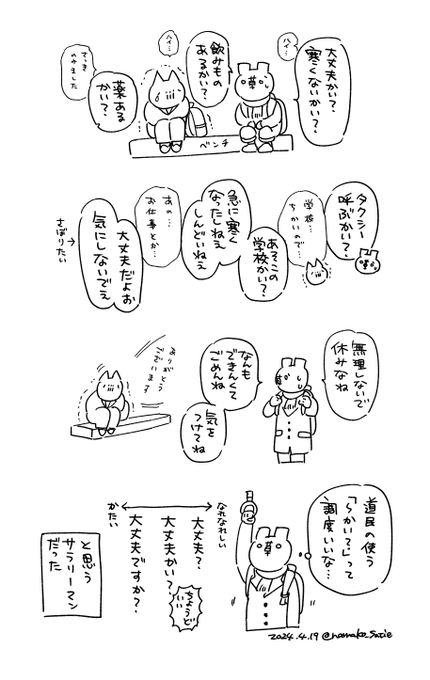 大丈夫かい？
寒くないかい？
ハイ…
飲みもの
あるかい？
ハイ…
薬ある
かい？
さっき
のみました
ベンチ
タクシー
呼ぶかい？
学校…
ちかいので…
あそこの
学校かい？
急に寒く
なったしねえ
しんどいねえ
あの…
お仕事とか…
大丈夫だよお
気にしないでえ
さぼりたい
無理しないで
休みなね
なんも
できんくて
ごめんね
気を
つけてね
ありがとう
ございます
道民の使う
「〜かい？」って
調度いいな…
なれなれしい
大丈夫？
大丈夫かい？
ちょうど
いい
大丈夫ですか？
かたい
と思う
サラリーマン
だった
2024.4.19 @namako_Sasie